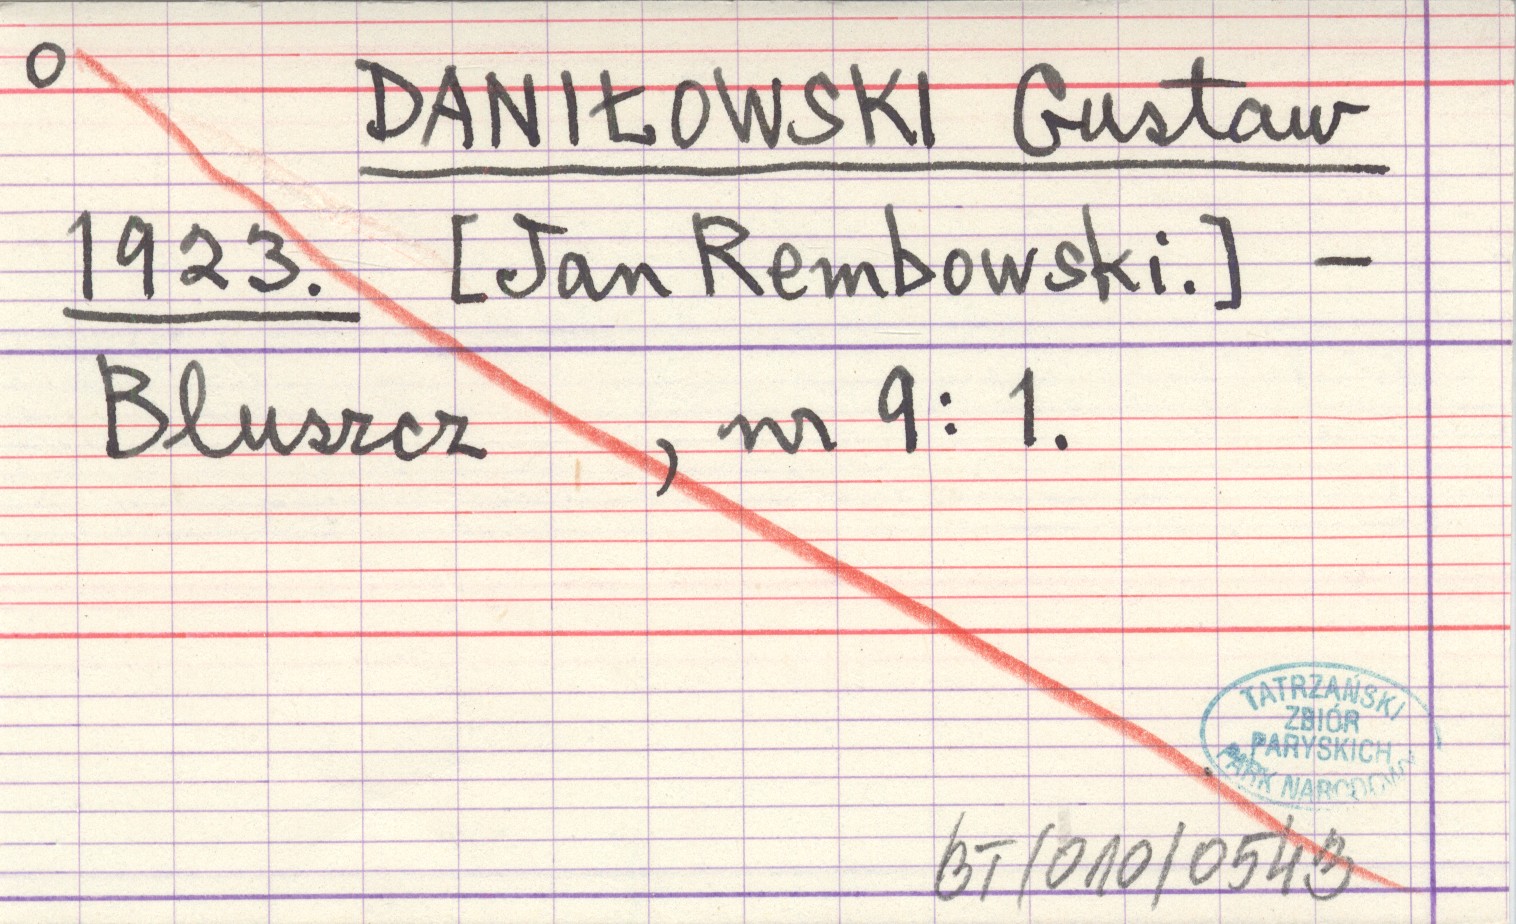 o
DANIŁOWSKI Gustaw
1923. [Jan Rembowski.] –
Bluszcz , nr 9: 1.
TATRZAŃSKI
ZBIÓR
PARYSKICH
PARK NARODOWY
BT/010/0543